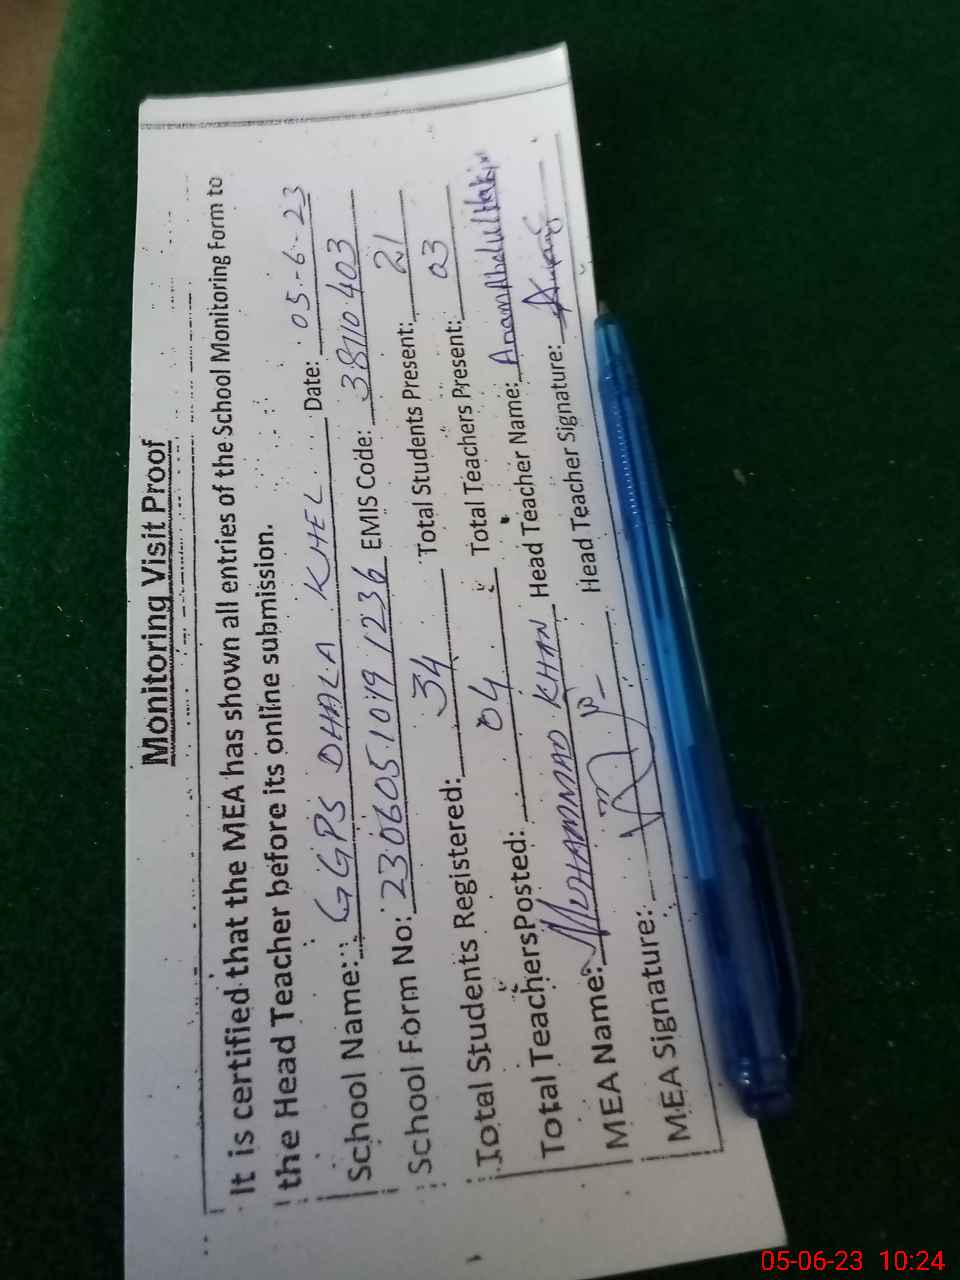 Monitoring Visit Proof
It is certified that the MEA has shown all entries of the School Monitoring Form to
the Head Teacher before its online submission.
School Name: GGPS DHALA KHEL Date: 05-6-23
School Form No: 230605 1019 1236 EMIS Code: 38110403
Total Students Registered: 34 Total Students Present: 21
Total Teachers Posted: 04 Total Teachers Present: 03
MEA Name: MUHAMMAD KHAN Head Teacher Name:
MEA Signature: Head Teacher Signature:
05-06-23 10:24